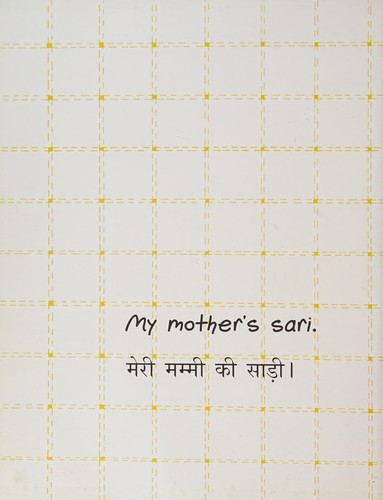 My mother's sari.
मेरी मम्मी की साड़ी।